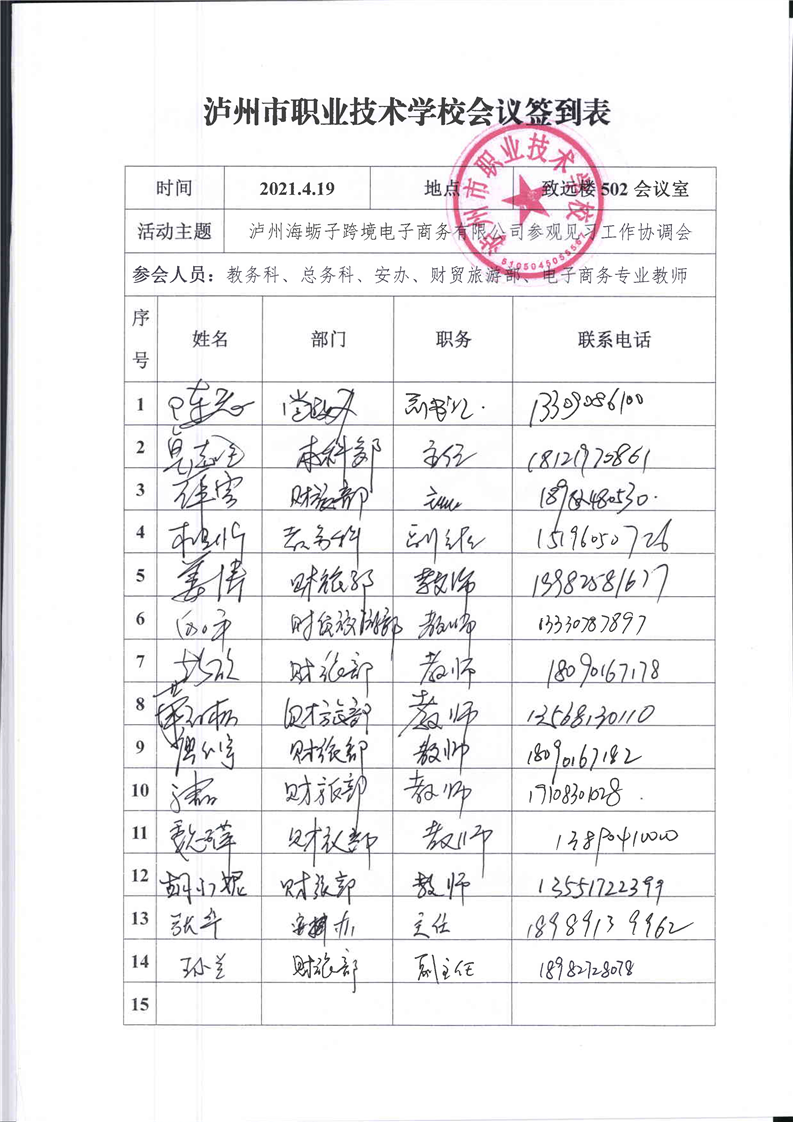 泸州市职业技术学校会议签到表
泸州市职业技术学校
5105045055567
时间 2021.4.19 地点 致远楼502会议室
活动主题 泸州海蛎子跨境电子商务有限公司参观见习工作协调会
参会人员：教务科、总务科、安办、财贸旅游部、电子商务专业教师
序号 姓名 部门 职务 联系电话
1 副书记. 13309086100
2 主任 18121970861
3 财旅部
4 教务科 副主任 15196050726
5 姜倩 财旅部 教师 13982581677
6 教师 13330787897
7 财旅部 教师 18090167178
8 财旅部 教师 13568130110
9 财旅部 教师 18090167182
10 财旅部 教师 19108301028.
11 财旅部 教师
12 财旅部 教师 13551722399
13 主任 18989139962
14 孙兰 财旅部 副主任 18982728078
15